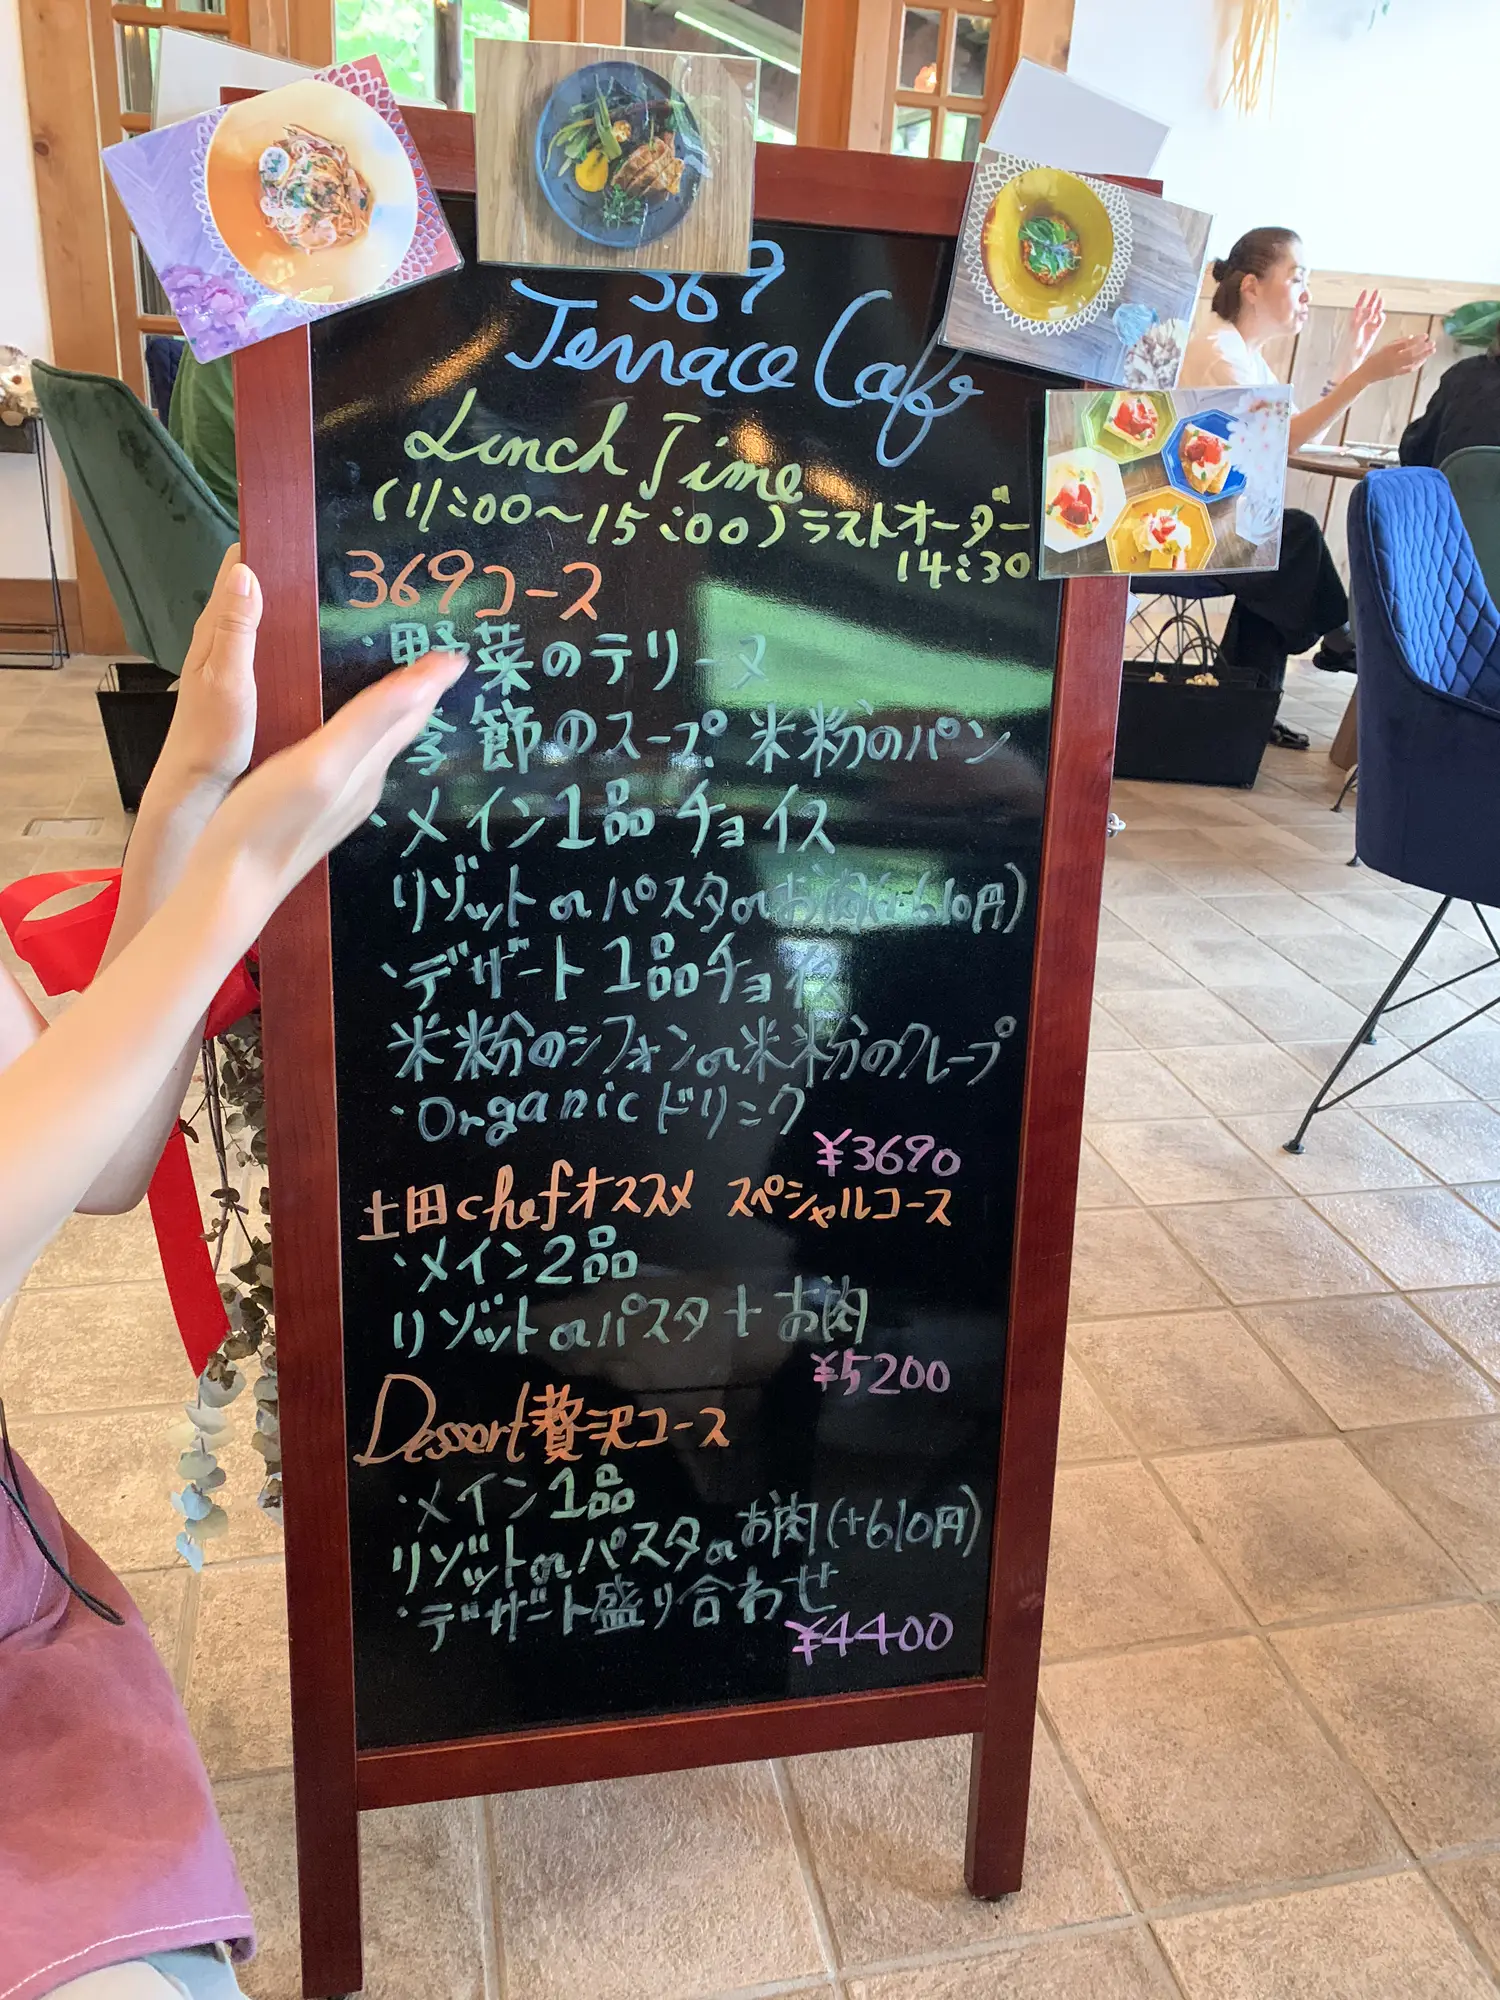 369
Terrace Cafe
Lunch Time
(11:00～15:00)ラストオーダー
14:30
369コース
・野菜のテリーヌ
季節のスープ 米粉のパン
・メイン1品チョイス
リゾットorパスタorお肉(+610円)
・デザート1品チョイス
米粉のシフォンor米粉のクレープ
・Organicドリンク
¥3690
土田chefオススメ スペシャルコース
・メイン2品
リゾットorパスタ+お肉
¥5200
Dessert贅沢コース
・メイン1品
リゾットorパスタorお肉(+610円)
・デザート盛り合わせ
¥4400